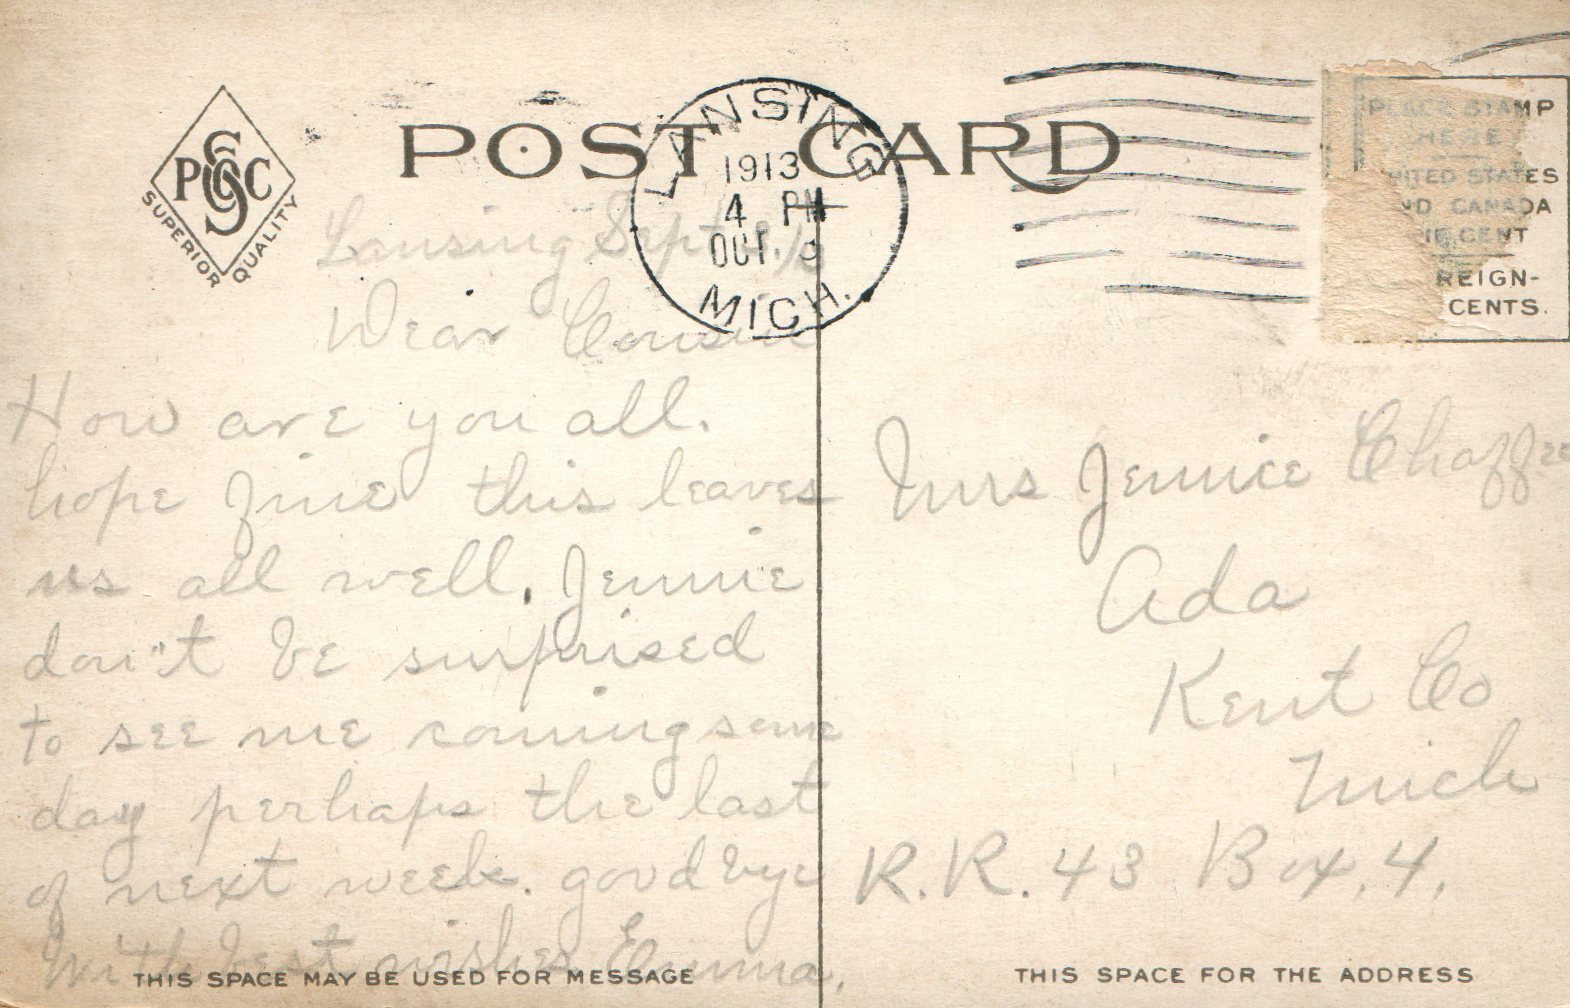 POST CARD
PSCC
SUPERIOR QUALITY
LANSING
1913
4 PM
OCT
MICH.
PLACE STAMP
HERE
UNITED STATES
AND CANADA
ONE CENT
REIGN-
CENTS.
Lansing Sept
Dear Cousin
How are you all.
hope fine this leaves
us all well, Jennie
don't be surprised
to see me coming some
day perhaps the last
of next week. good bye
With best wishes Emma.
Mrs Jennie Chaffee
Ada
Kent Co
Mich
R.R. 43 Box. 4.
THIS SPACE MAY BE USED FOR MESSAGE
THIS SPACE FOR THE ADDRESS